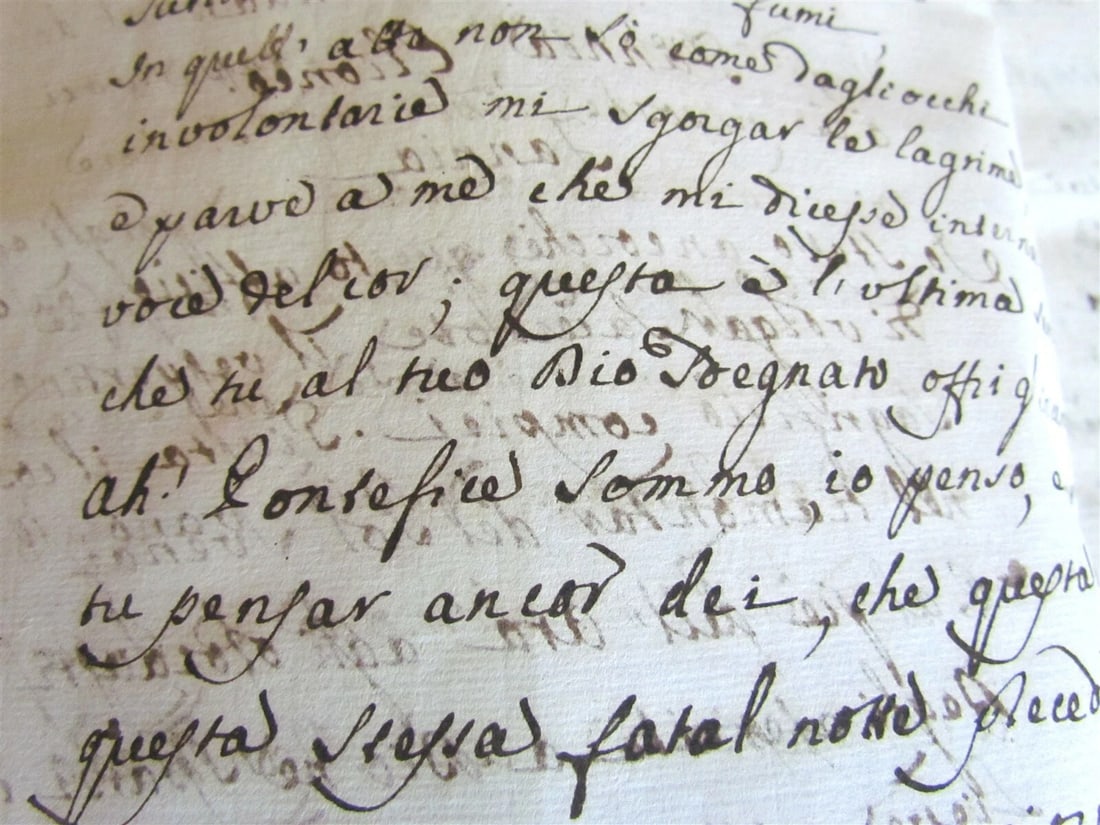 fumi,
In quell' atto non so come dagli occhi
involontarie mi sgorgar le lagrime
e parve a me che mi dicesse
voce del cor; questa è l'ultima
che tu al tuo Dio sdegnato offri
ah! Pontefice sommo, io penso, e
tu pensar ancor dei, che questa
questa stessa fatal notte